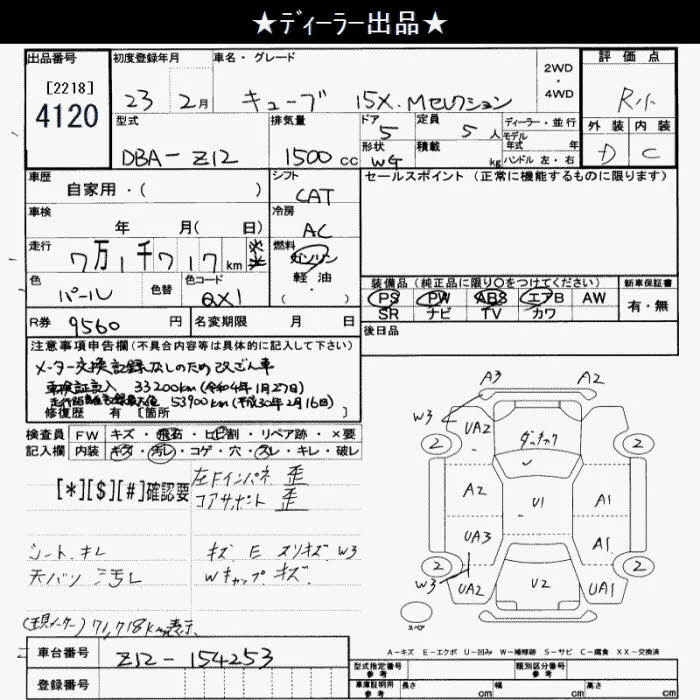 ★ディーラー出品★
出品番号 初度登録年月 車名・グレード 2WD・4WD 評価点
[2218]
4120
23 2月 キューブ 15X.Mセレクション
型式 排気量 ドア 5 定員 5人 ディーラー・並行
モデル年式 年
外装 内装
DBA-Z12 1500cc 形状 WG 積載 kg ハンドル 左・右 D C
車歴 シフト セールスポイント(正常に機能するものに限ります)
自家用・( ) CAT
車検 冷房
年 月( 日) AC
走行 燃料
7万1千717km ガソリン
軽油
(・)
色 色替 色コード
パール QX1
装備品(純正品に限り○をつけてください) 新車保証書
PS PW ABS エアB AW 有・無
SR ナビ TV カワ
R券 9560円 名変期限 月 日 後日品
注意事項申告欄(不具合内容等は具体的に記入して下さい)
メーター交換記録なしのため改ざん車
車検証記入 33200km(令和4年1月27日)
53900km(平成30年2月16日)
修復歴 有[箇所 ]
検査員 FW キズ・飛石・ヒビ割・リペア跡・×要
記入欄 内装 キズ・汚レ・コゲ・穴・スレ・キレ・破レ
[*][$][#]確認要
左Fインパネ 歪
コアサポート 歪
シート キレ キズ E スリキズ W3
天バリ 汚レ Wキャップ キズ
(現メーター)71,718km表示
A3 A2
W3
UA2
2 2
A2 U1 A1
UA3 A1
2 2
W3 UA2 U2 UA1
スペア
A-キズ E-エクボ U-凹み W-補修跡 S-サビ C-腐食 XX-交換済
車台番号 Z12-154253
登録番号
型式指定番号 参考 類別区分番号 参考
車庫証明用 参考 長さ cm 幅 cm 高さ cm